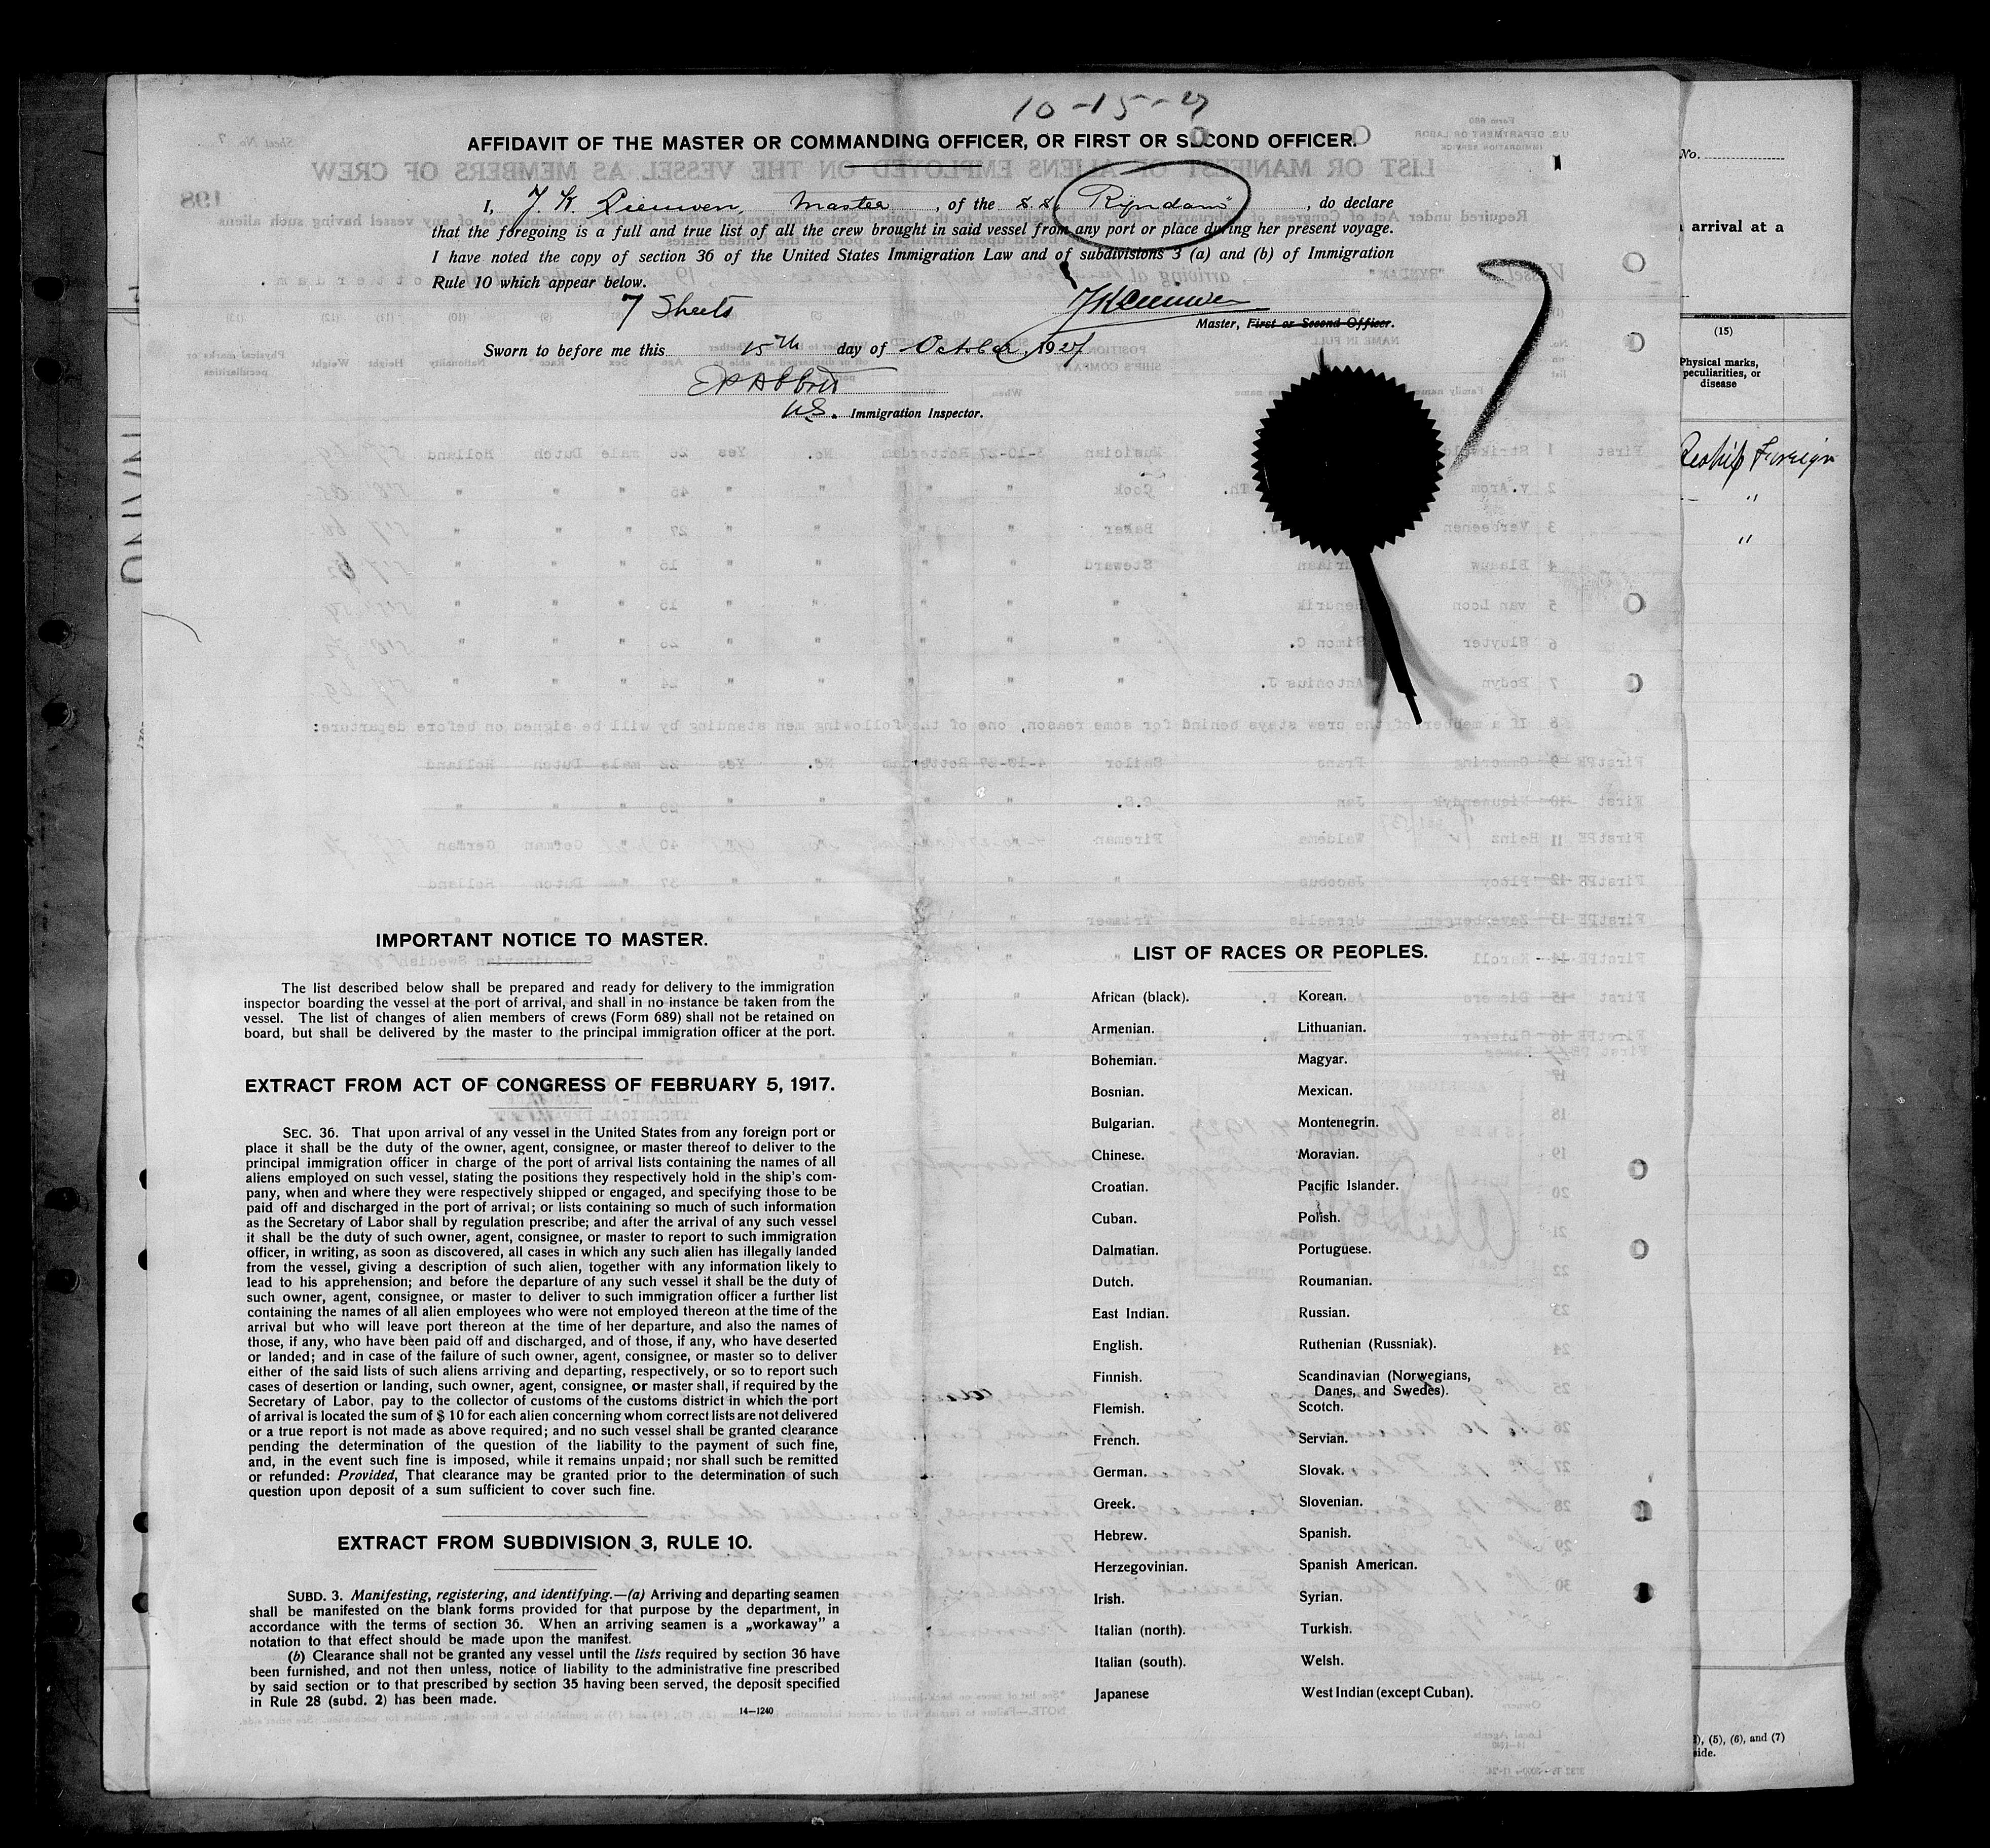 10-15-27
AFFIDAVIT OF THE MASTER OR COMMANDING OFFICER, OR FIRST OR SECOND OFFICER.
I, Master, of the S.S. "Ryndam", do declare
that the foregoing is a full and true list of all the crew brought in said vessel from any port or place during her present voyage.
I have noted the copy of section 36 of the United States Immigration Law and of subdivisions 3 (a) and (b) of Immigration
Rule 10 which appear below.
7 Sheets
Master, First or Second Officer.
Sworn to before me this 15th day of October, 1927
E P Abbott
U.S. Immigration Inspector.
7
IMPORTANT NOTICE TO MASTER.
The list described below shall be prepared and ready for delivery to the immigration
inspector boarding the vessel at the port of arrival, and shall in no instance be taken from the
vessel. The list of changes of alien members of crews (Form 689) shall not be retained on
board, but shall be delivered by the master to the principal immigration officer at the port.
EXTRACT FROM ACT OF CONGRESS OF FEBRUARY 5, 1917.
SEC. 36. That upon arrival of any vessel in the United States from any foreign port or
place it shall be the duty of the owner, agent, consignee, or master thereof to deliver to the
principal immigration officer in charge of the port of arrival lists containing the names of all
aliens employed on such vessel, stating the positions they respectively hold in the ship's com-
pany, when and where they were respectively shipped or engaged, and specifying those to be
paid off and discharged in the port of arrival; or lists containing so much of such information
as the Secretary of Labor shall by regulation prescribe; and after the arrival of any such vessel
it shall be the duty of such owner, agent, consignee, or master to report to such immigration
officer, in writing, as soon as discovered, all cases in which any such alien has illegally landed
from the vessel, giving a description of such alien, together with any information likely to
lead to his apprehension; and before the departure of any such vessel it shall be the duty of
such owner, agent, consignee, or master to deliver to such immigration officer a further list
containing the names of all alien employees who were not employed thereon at the time of the
arrival but who will leave port thereon at the time of her departure, and also the names of
those, if any, who have been paid off and discharged, and of those, if any, who have deserted
or landed; and in case of the failure of such owner, agent, consignee, or master so to deliver
either of the said lists of such aliens arriving and departing, respectively, or so to report such
cases of desertion or landing, such owner, agent, consignee, or master shall, if required by the
Secretary of Labor, pay to the collector of customs of the customs district in which the port
of arrival is located the sum of $ 10 for each alien concerning whom correct lists are not delivered
or a true report is not made as above required; and no such vessel shall be granted clearance
pending the determination of the question of the liability to the payment of such fine,
and, in the event such fine is imposed, while it remains unpaid; nor shall such be remitted
or refunded: Provided, That clearance may be granted prior to the determination of such
question upon deposit of a sum sufficient to cover such fine.
EXTRACT FROM SUBDIVISION 3, RULE 10.
SUBD. 3. Manifesting, registering, and identifying.—(a) Arriving and departing seamen
shall be manifested on the blank forms provided for that purpose by the department, in
accordance with the terms of section 36. When an arriving seamen is a „workaway" a
notation to that effect should be made upon the manifest.
(b) Clearance shall not be granted any vessel until the lists required by section 36 have
been furnished, and not then unless, notice of liability to the administrative fine prescribed
by said section or to that prescribed by section 35 having been served, the deposit specified
in Rule 28 (subd. 2) has been made.
14—1240
LIST OF RACES OR PEOPLES.
African (black).
Armenian.
Bohemian.
Bosnian.
Bulgarian.
Chinese.
Croatian.
Cuban.
Dalmatian.
Dutch.
East Indian.
English.
Finnish.
Flemish.
French.
German.
Greek.
Hebrew.
Herzegovinian.
Irish.
Italian (north).
Italian (south).
Japanese
Korean.
Lithuanian.
Magyar.
Mexican.
Montenegrin.
Moravian.
Pacific Islander.
Polish.
Portuguese.
Roumanian.
Russian.
Ruthenian (Russniak).
Scandinavian (Norwegians,
Danes, and Swedes).
Scotch.
Servian.
Slovak.
Slovenian.
Spanish.
Spanish American.
Syrian.
Turkish.
Welsh.
West Indian (except Cuban).
No.
arrival at a
(15)
Physical marks,
peculiarities, or
disease
Reship Foreign
"
"
(5), (6), and (7)
side.